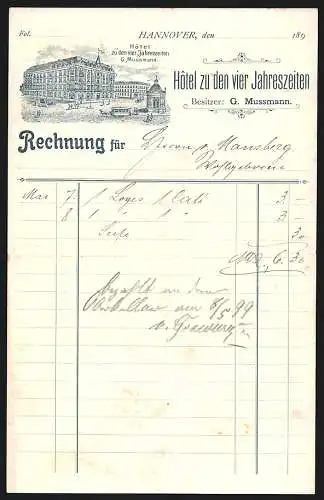 Fol. HANNOVER, den 189
Hôtel
zu den vier Jahreszeiten
G. Mussmann.
Hôtel zu den vier Jahreszeiten
Besitzer: G. Mussmann.
Rechnung für Herrn v. Mansberg
Mai 7. 1 Loges 3 –
8 1 3 –
Seife 30
6. 30
bezahlt an den
am 8/5 99